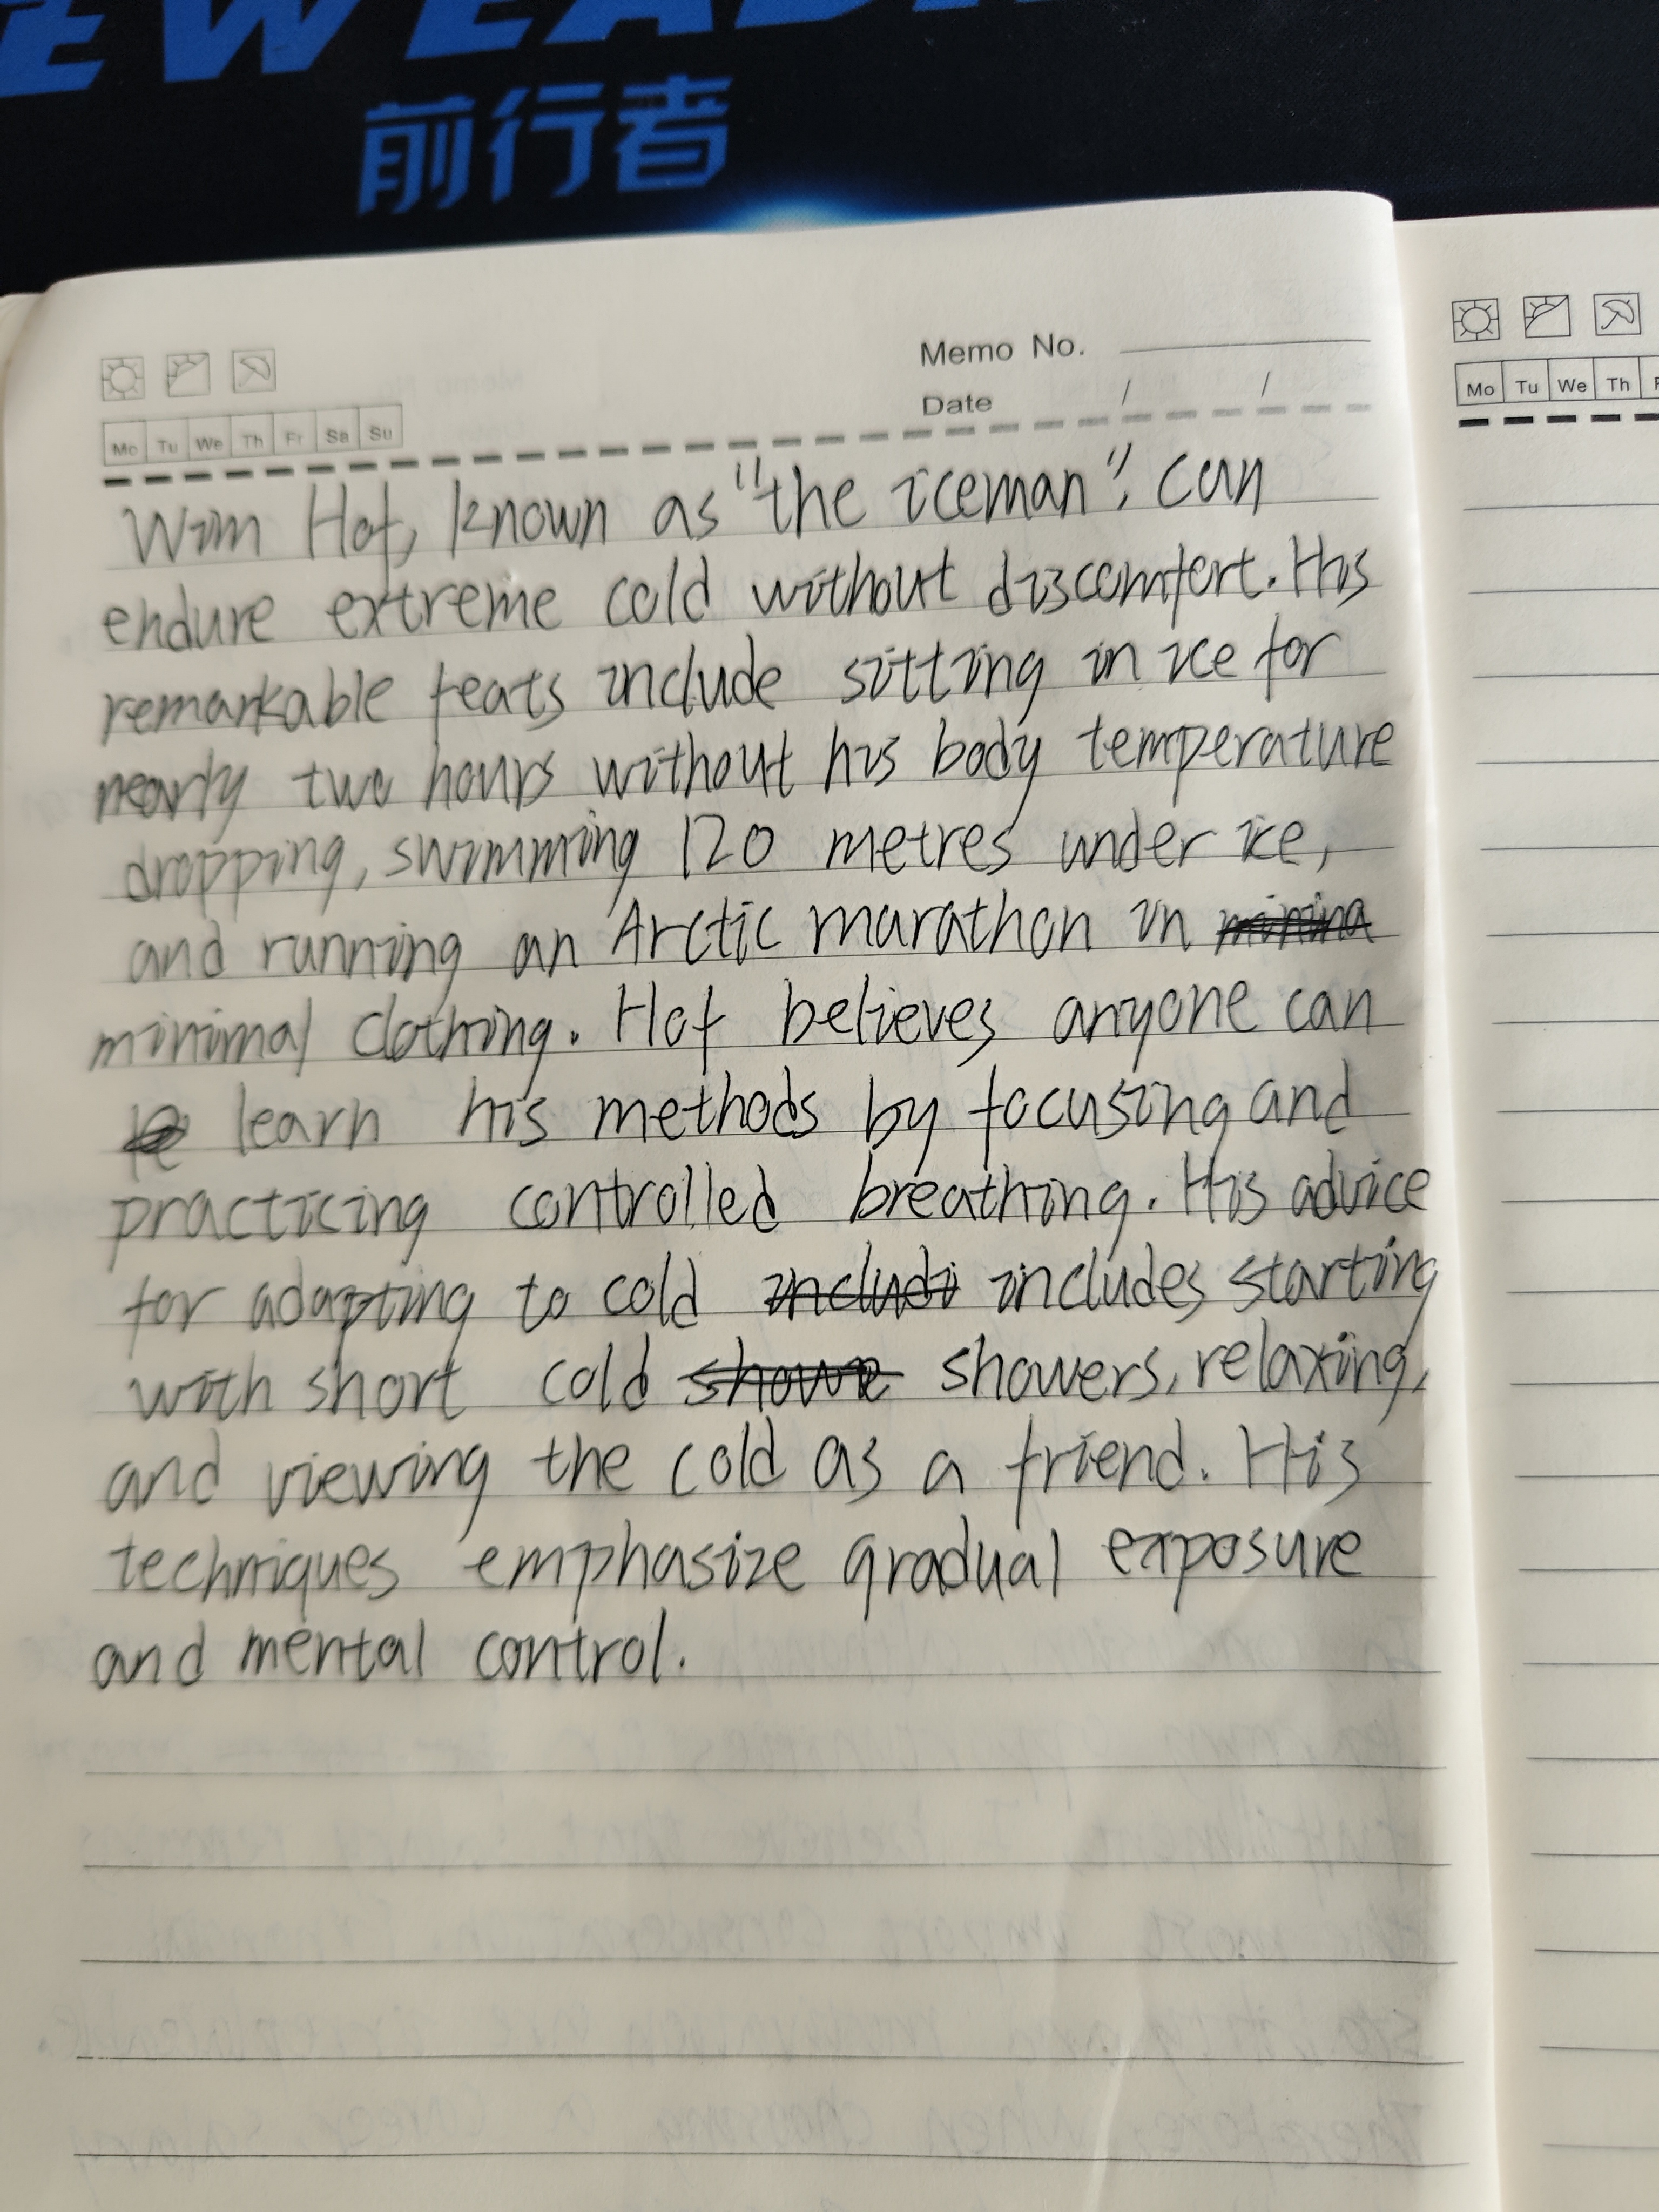 前行者
Memo No.
Date / /
Mo Tu We Th Fr Sa Su
Mo Tu We Th
Wim Hof, known as "the iceman", can
endure extreme cold without discomfort. His
remarkable feats include sitting in ice for
nearly two hours without his body temperature
dropping, swimming 120 metres under ice,
and running an Arctic marathon in minina
minimal clothing. Hof believes anyone can
learn his methods by focusing and
practicing controlled breathing. His advice
for adapting to cold includi includes starting
with short cold showe showers, relaxing,
and viewing the cold as a friend. His
techniques emphasize gradual exposure
and mental control.